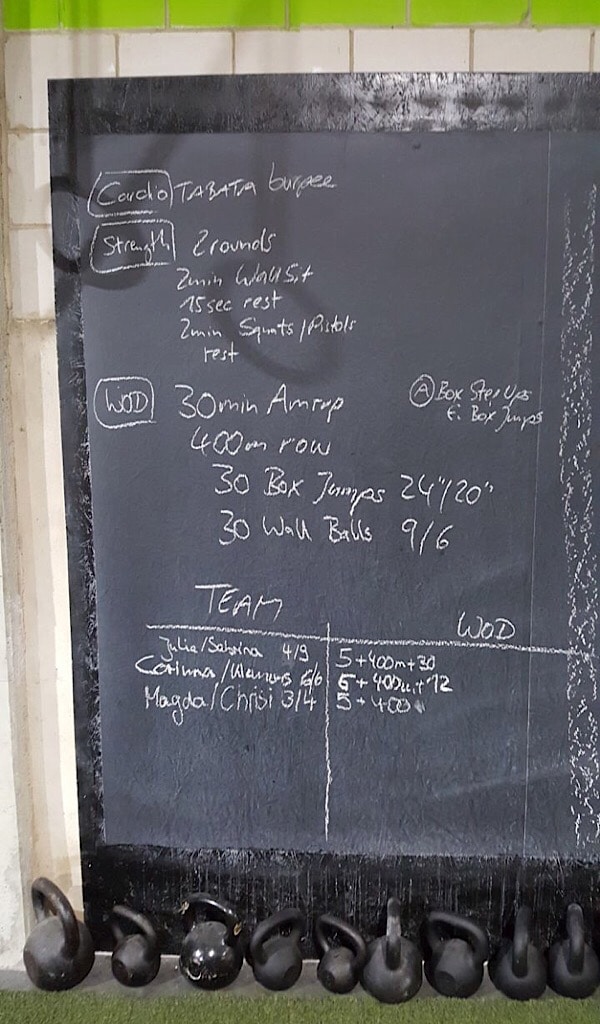 Cardio TABATA burpee
Strength 2 rounds
2min Wall Sit
15sec rest
2min Squats/Pistols
rest
WOD 30min Amrap
A Box Step Ups
E: Box Jumps
400m row
30 Box Jumps 24"/20"
30 Wall Balls 9/6
TEAM WOD
Julia/Sabrina 4/9 5+400m+30
Corinna/ 6/6 5+400m+12
Magda/Chrisi 3/4 5+400